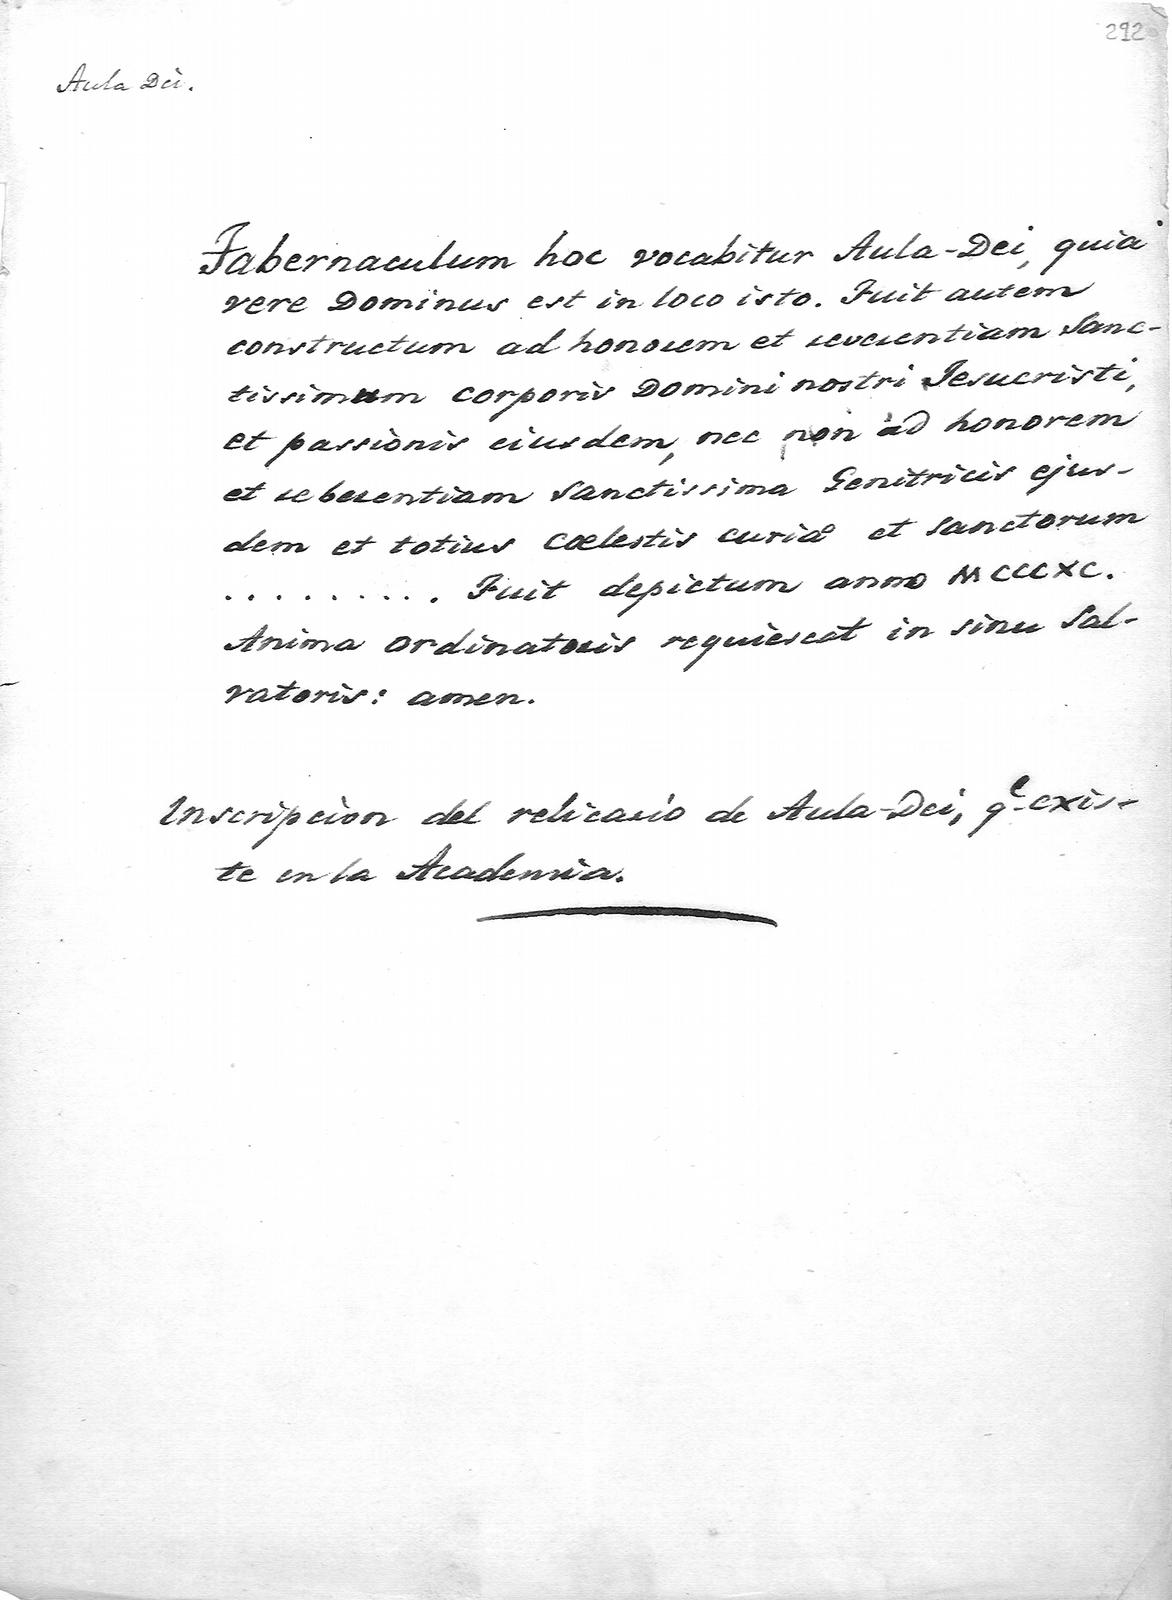 292
Aula Dei.
Tabernaculum hoc vocabitur Aula-Dei, quia
vere Dominus est in loco isto. Fuit autem
constructum ad honorem et reverentiam Sanc-
tissimum corporis Domini nostri Jesucristi,
et passionis eiusdem, nec non ad honorem
et reberentiam Sanctissima Genitricis ejus-
dem et totius Cœlestis curiæ et Sanctorum
. . . . . . . . . . Fuit depictum anno MCCCXC.
Anima ordinatoris requiescat in sinu Sal-
vatoris: amen.
Inscripcion del relicario de Aula-Dei, qe exis-
te en la Academia.